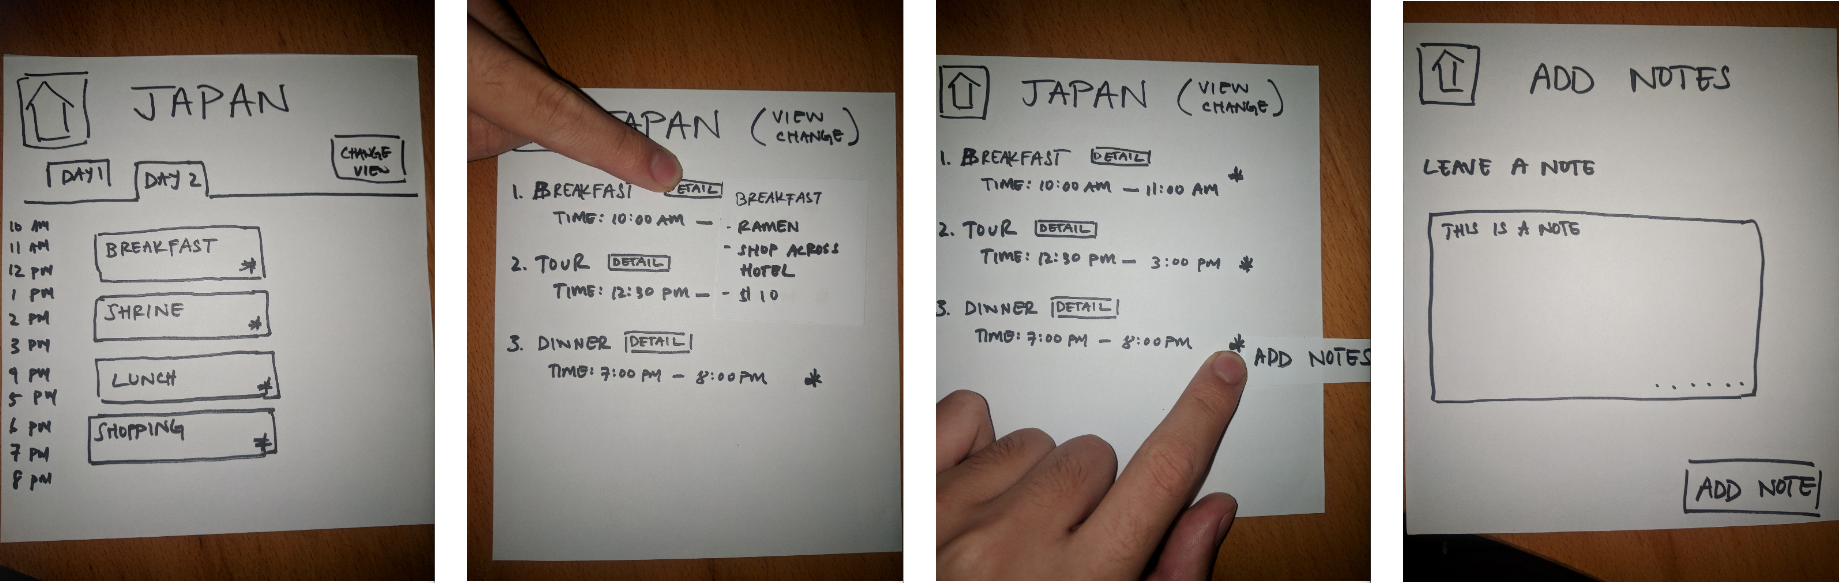 JAPAN
CHANGE
VIEW
DAY 1
DAY 2
10 AM
11 AM
12 PM
1 PM
2 PM
3 PM
4 PM
5 PM
6 PM
7 PM
8 PM
BREAKFAST *
SHRINE *
LUNCH *
SHOPPING *
JAPAN (VIEW
CHANGE)
1. BREAKFAST DETAIL
TIME: 10:00 AM —
BREAKFAST
- RAMEN
- SHOP ACROSS
HOTEL
- $10
2. TOUR DETAIL
TIME: 12:30 PM —
3. DINNER DETAIL
TIME: 7:00 PM — 8:00 PM *
JAPAN (VIEW
CHANGE)
1. BREAKFAST DETAIL
TIME: 10:00 AM — 11:00 AM *
2. TOUR DETAIL
TIME: 12:30 PM — 3:00 PM *
3. DINNER DETAIL
TIME: 7:00 PM — 8:00 PM *
ADD NOTES
ADD NOTES
LEAVE A NOTE
THIS IS A NOTE
......
ADD NOTE